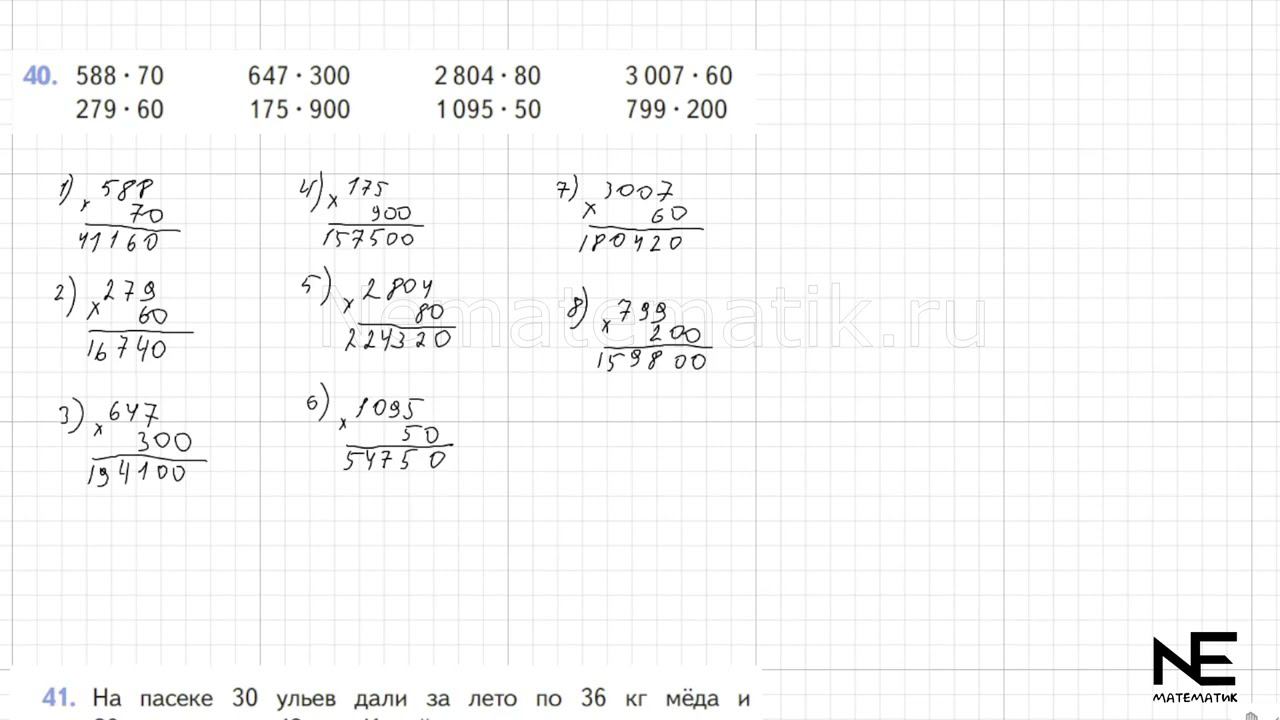 40. 588 · 70 647 · 300 2 804 · 80 3 007 · 60
279 · 60 175 · 900 1 095 · 50 799 · 200
1) × 588
70
41160
2) × 279
60
16740
3) × 647
300
194100
4) × 175
900
157500
5) × 2804
80
224320
6) × 1095
50
54750
7) × 3007
60
180420
8) × 799
200
159800
Nematematik.ru
41. На пасеке 30 ульев дали за лето по 36 кг мёда и
NE
МАТЕМАТИК